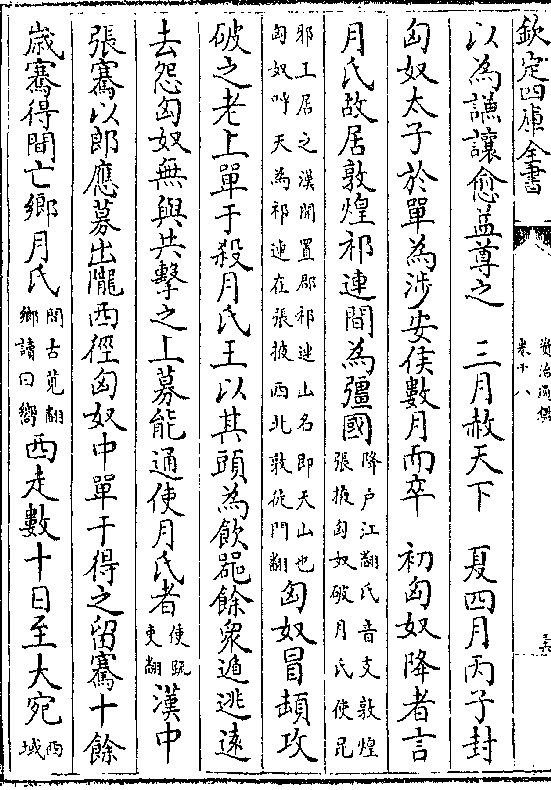 欽定四庫全書
資治通鑑
卷十八
以為謙讓愈益尊之　三月赦天下　夏四月丙子封
匈奴太子於單為涉安侯數月而卒　初匈奴降者言
月氏故居敦煌祁連間為彊國降户江翻氏音支敦煌張掖匈奴破月氏使昆
邪王居之漢開置郡祁連山名即天山也匈奴呼天為祁連在張掖西北敦徒門翻匈奴冒頓攻
破之老上單于殺月氏王以其頭為飲器餘衆遁逃遠
去怨匈奴無與共擊之上募能通使月氏者使疏吏翻漢中
張騫以郎應募出隴西徑匈奴中單于得之留騫十餘
歲騫得間亡鄉月氏間古莧翻鄉讀曰嚮西走數十日至大宛西域